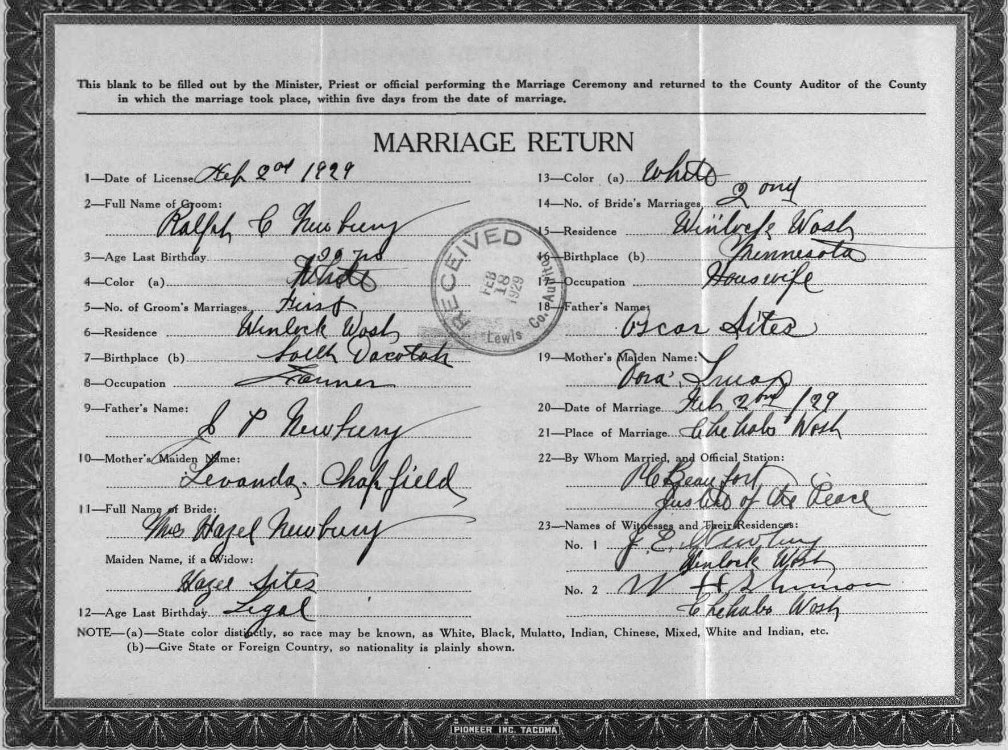 This blank to be filled out by the Minister, Priest or official performing the Marriage Ceremony and returned to the County Auditor of the County
in which the marriage took place, within five days from the date of marriage.
MARRIAGE RETURN
1—Date of License Feb 2nd 1929
2—Full Name of Groom:
Ralph C Newbury
3—Age Last Birthday 30 yrs
4—Color (a) White
5—No. of Groom's Marriages First
6—Residence Winlock Wash
7—Birthplace (b) South Dacotah
8—Occupation Farmer
9—Father's Name:
P Newbury
10—Mother's Maiden Name:
Levanda Chapfield
11—Full Name of Bride:
Mrs Hazel Newbury
Maiden Name, if a Widow:
Hazel Sites
12—Age Last Birthday Legal
RECEIVED
FEB
18
1929
Lewis Co. Auditor
13—Color (a) White
14—No. of Bride's Marriages 2 ond
15—Residence Winlock Wash
16—Birthplace (b) Minnesota
17—Occupation Housewife
18—Father's Name:
Oscar Sites
19—Mother's Maiden Name:
Dora
20—Date of Marriage Feb 2ond /29
21—Place of Marriage Chehalis Wash
22—By Whom Married, and Official Station:
Beaufort
Justice of the Peace
23—Names of Witnesses and Their Residences:
No. 1 J E Newbury
Winlock Wash
No. 2 W H
Chehalis Wash
NOTE—(a)—State color distinctly, so race may be known, as White, Black, Mulatto, Indian, Chinese, Mixed, White and Indian, etc.
(b)—Give State or Foreign Country, so nationality is plainly shown.
PIONEER INC. TACOMA